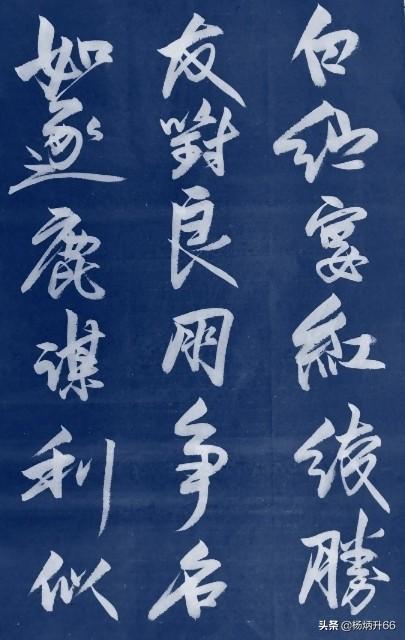 白紵宴紅綾勝
友對良朋争名
如逐鹿謀利似
头条 @杨炳升66